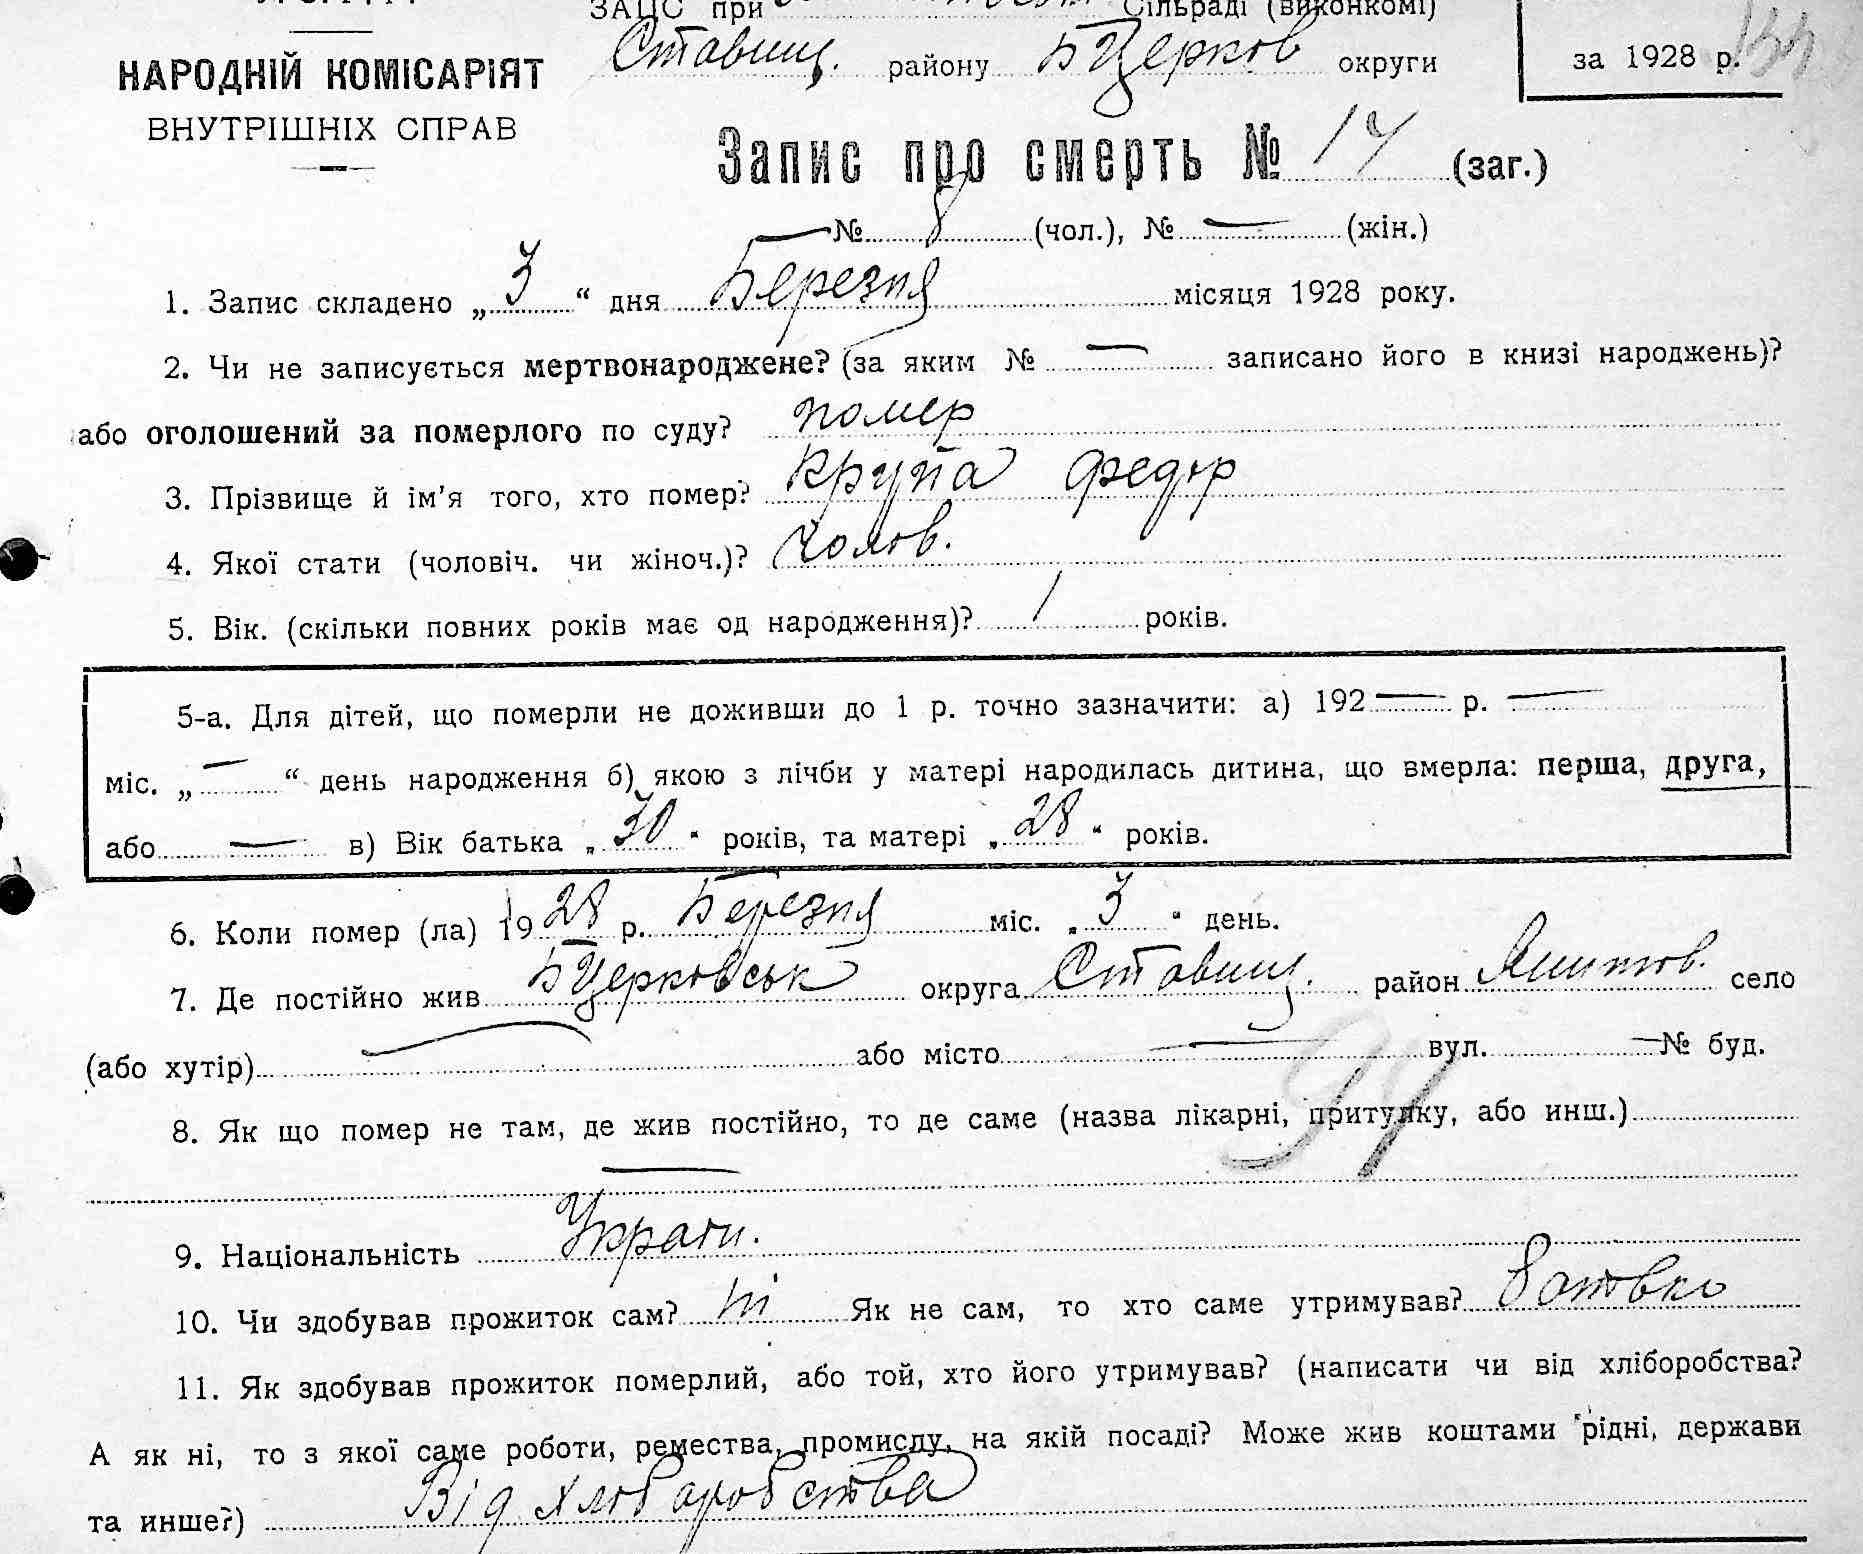 ЗАЦС при Сільраді (виконкомі)
Ставищ. району БЦерков округи
за 1928 р.
НАРОДНІЙ КОМІСАРІЯТ
ВНУТРІШНІХ СПРАВ
Запис про смерть № 14 (заг.)
№ 8 (чол.), № — (жін.)
1. Запис складено „ 3 “ дня Березня місяця 1928 року.
2. Чи не записується мертвонароджене? (за яким № — записано його в книзі народжень)?
або оголошений за померлого по суду? помер
3. Прізвище й ім'я того, хто помер? Крупа Федір
4. Якої стати (чоловіч. чи жіноч.)? чолов.
5. Вік. (скільки повних років має од народження)? 1 років.
5-а. Для дітей, що померли не доживши до 1 р. точно зазначити: а) 192 — р. —
міс. „ — “ день народження б) якою з лічби у матері народилась дитина, що вмерла: перша, друга,
або — в) Вік батька „ 30 “ років, та матері „ 28 “ років.
6. Коли помер (ла) 1928 р. Березня міс. „ 3 “ день.
7. Де постійно жив БЦерковськ округа Ставищ. район село
(або хутір) — або місто — вул. — № буд.
8. Як що помер не там, де жив постійно, то де саме (назва лікарні, притулку, або инш.)
—
94
9. Національність Украгн.
10. Чи здобував прожиток сам? ні Як не сам, то хто саме утримував? батько
11. Як здобував прожиток померлий, або той, хто його утримував? (написати чи від хліборобства?
А як ні, то з якої саме роботи, ремества, промислу, на якій посаді? Може жив коштами рідні, держави
та инше?) Від хліборобства